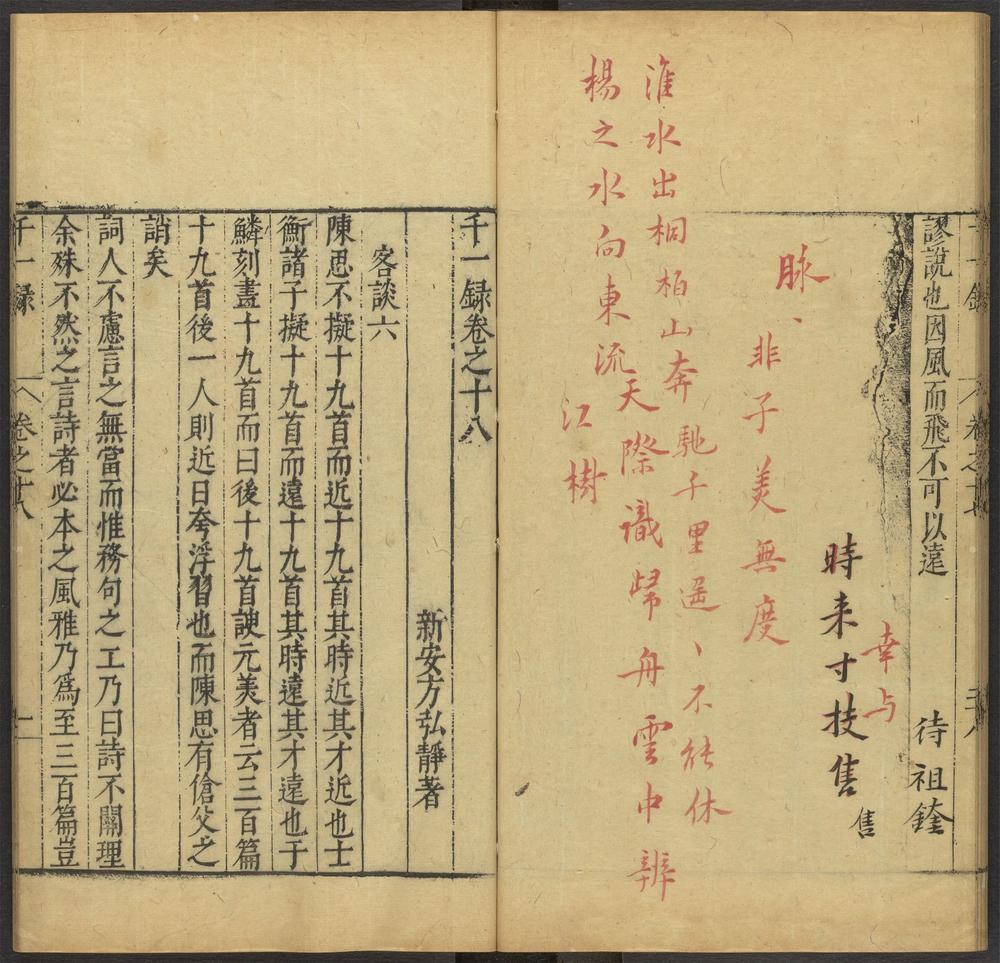 千一錄 卷之十七 三八
謬說也因風而飛不可以遠
待祖鍷
幸与
時来寸技售
售
脉、
非子美無度
淮水出桐柏山奔馳千里遥、不能休
天際識歸舟雲中辨
楊之水向東流
江樹
千一録卷之十八
新安方弘靜著
客談六
陳思不擬十九首而近十九首其時近其才近也士
衡諸子擬十九首而遠十九首其時遠其才遠也于
鱗刻畫十九首而曰後十九首諛元美者云三百篇
十九首後一人則近日夸浮習也而陳思有傖父之
誚矣
詞人不慮言之無當而惟務句之工乃曰詩不關理
余殊不然之言詩者必本之風雅乃爲至三百篇豈
千一録 卷之十八 一